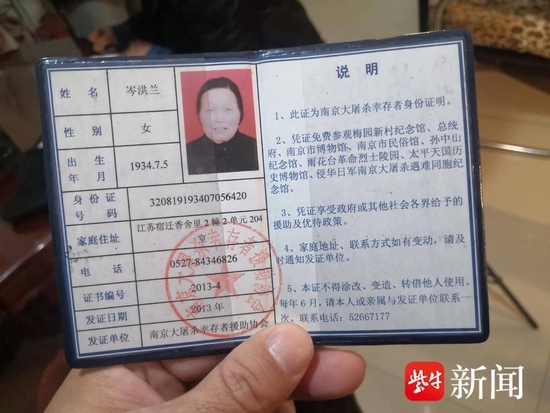 姓 名 岑洪兰
性 别 女
出 生
年 月 1934.7.5
身份证
号 码 320819193407056420
家庭住址 江苏宿迁香舍里2幢2单元204
室
电 话 0527-84346826
证书编号 2013-4
发证日期 2013年
发证单位 南京大屠杀幸存者援助协会
说 明
1、此证为南京大屠杀幸存者身份证明。
2、凭证免费参观梅园新村纪念馆、总统
府、南京市博物馆、南京市民俗馆、孙中山
纪念馆、雨花台革命烈士陵园、太平天国历
史博物馆、侵华日军南京大屠杀遇难同胞纪
念馆。
3、凭证享受政府或其他社会各界给予的
援助及优待政策。
4、家庭地址、联系方式如有变动，请及
时通知发证单位。
5、本证不得涂改、变造、转借他人使用。
每年6月，请本人或亲属与发证单位联系一
次。联系电话：52667177
紫牛新闻